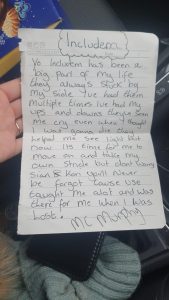 Includem
Yo Includem has been a
big part of my life
they always stuck by
my side I've had them
multiple times i've had my
ups and downs they've seen
me cry even when I thought
I was going die they
helped me see light but
now its time for me to
move on and take my
own stride but dont worry
Sian & Kerr youll Never
be forgot 'cause use
taught me alot and was
there for me when I was
lost.
MC Murphy